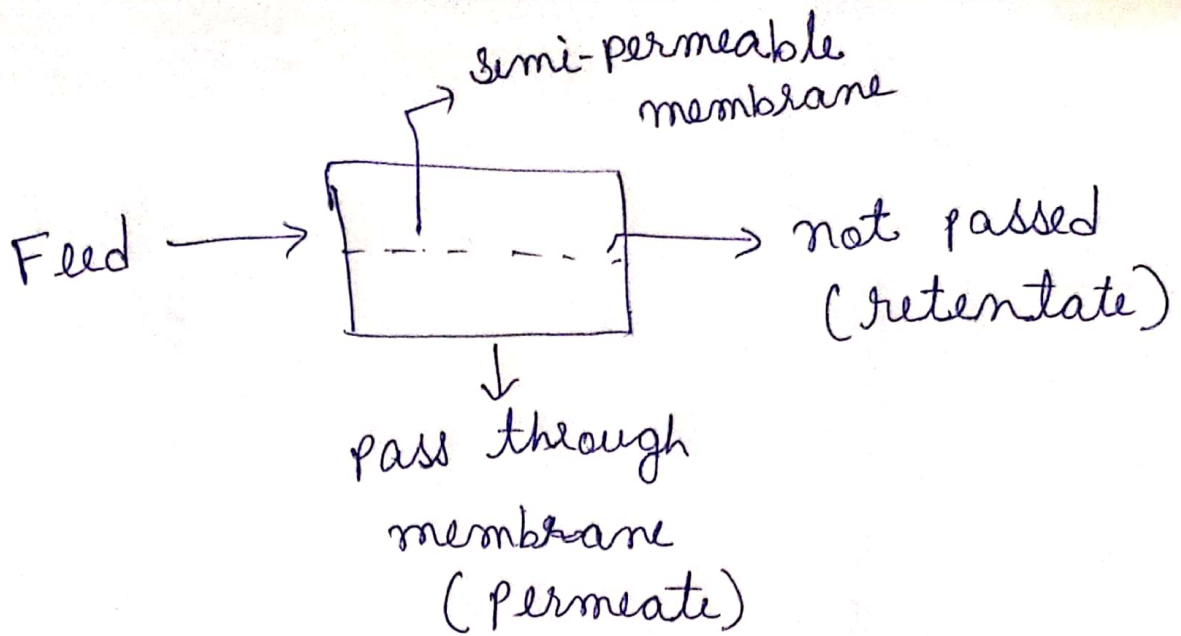 semi-permeable
membrane
Feed
not passed
(retentate)
pass through
membrane
(permeate)